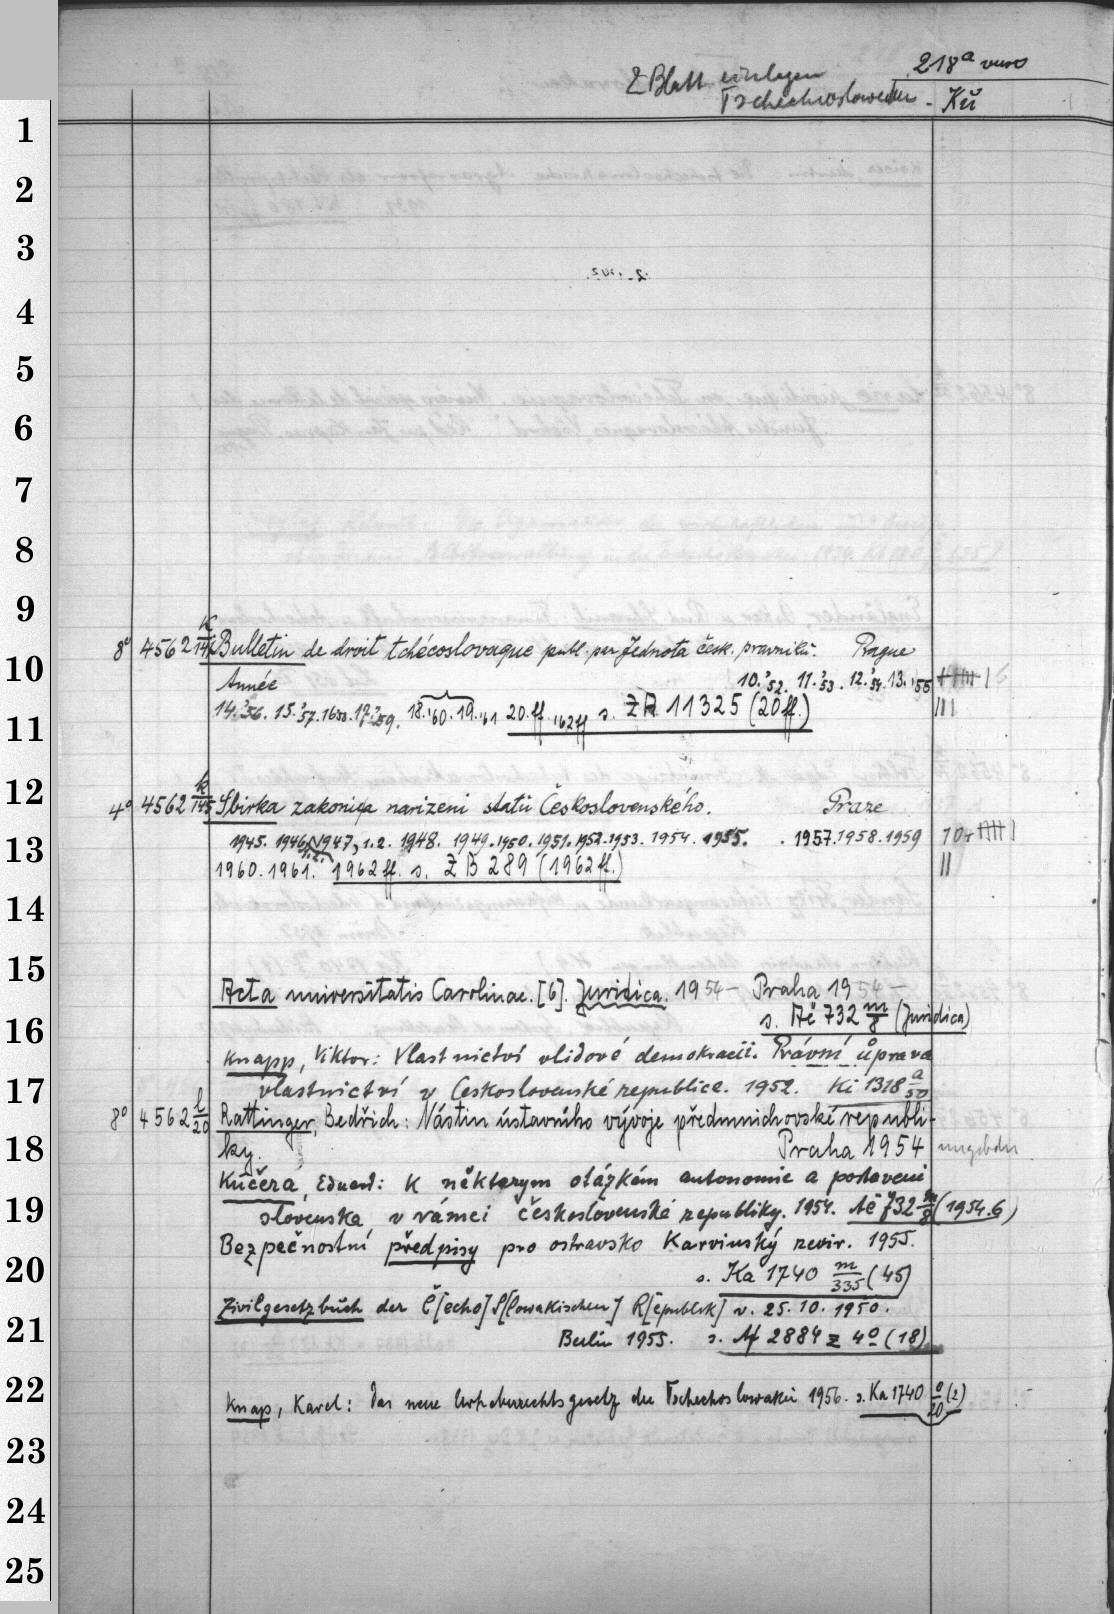 218a verso
2 Blatt einlegen
Tschechoslowakei - Kü
1
2
3
4
5
6
7
8
9
8° 4562 k/144 Bulletin de droit tchécoslovaque publ. par Jednota česk. pravniků. Prague
10
Année 10.'52. 11.'53. 12.'54. 13.'55
14.'56. 15.'57. 16.'58. 17.'59. 18.'60. 19.'61 20.ff '62ff s. ZA 11325 (20ff.)
11
12
4° 4562 k/145 Sbirka zakonů a narizeni statu Československého. Praze
1945. 1946. 1947, 1.2. 1948. 1949. 1950. 1951. 1952. 1953. 1954. 1955. . 1957. 1958. 1959
13
1960. 1961. 1962ff. s. ZB 289 (1962ff.)
14
15
Acta universitatis Carolinae. [6]. Juridica. 1954- Praha 1954-
16
s. Ač 732 m/8 (Juridica)
Knapp, Viktor: Vlastnictví v lidové demokracii. Právní úprava
17
vlastnictví v Československé republice. 1952. Ki 1318 a/50
8° 4562 l/20 Rattinger, Bedřich: Nástin ústavního vývoje předmnichovské republi-
18
ky. Praha 1954 ungebdn
Kučera, Eduard: K některym otázkám autonomie a postavení
19
slovenska v rámci československé republiky. 1954. Ač 732 m/8 (1954.6)
Bezpečnostní předpisy pro ostravsko Karvinský revir. 1955.
20
s. Ka 1740 m/335 (45)
Zivilgesetzbuch der Č[echo]S[lowakischen] R[epublik] v. 25.10.1950.
21
Berlin 1955. s. Af 2884 z 4° (18)
22
Knap, Karel: Das neue Urheberrechtsgesetz der Tschechoslowakei 1956. s. Ka 1740 o/20 (2)
23
24
25